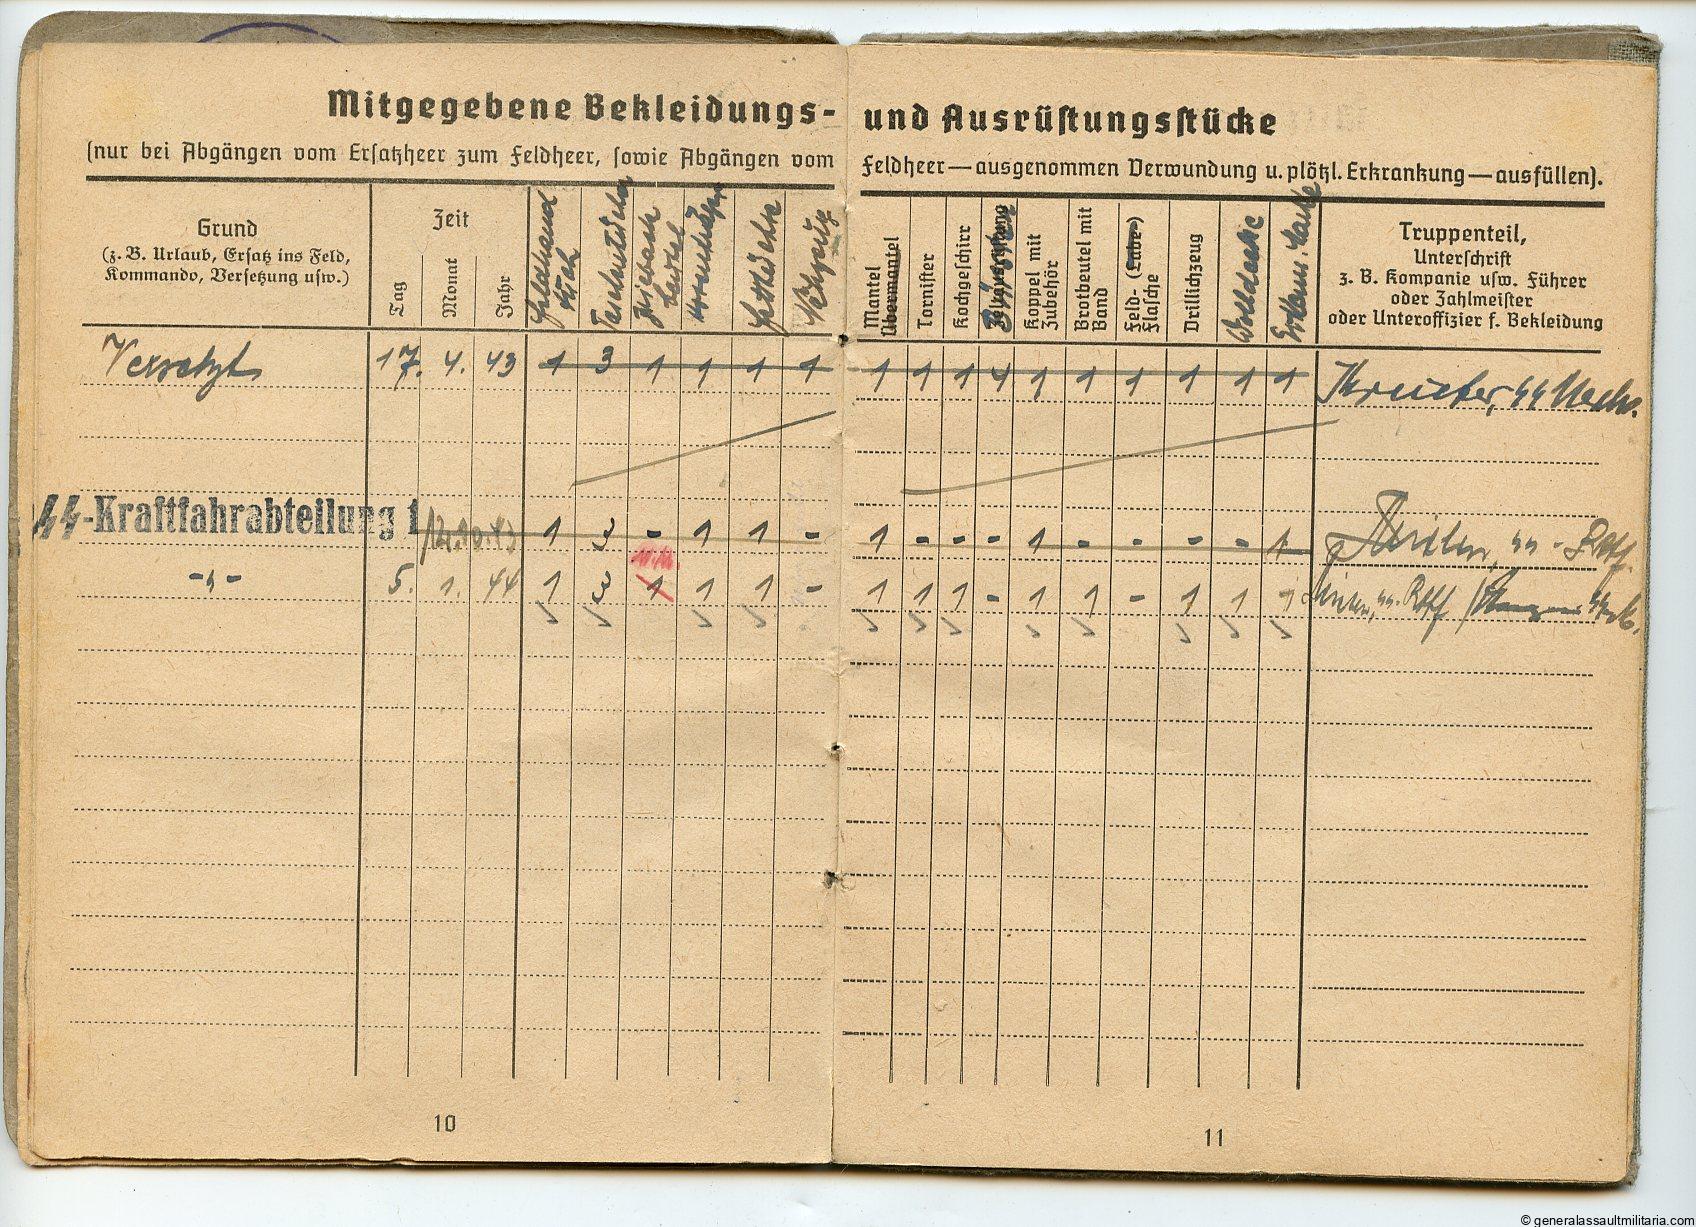 Mitgegebene Bekleidungs- und Ausrüstungsstücke
(nur bei Abgängen vom Ersatzheer zum Feldheer, sowie Abgängen vom Feldheer — ausgenommen Verwundung u. plötzl. Erkrankung — ausfüllen).
Grund
(z. B. Urlaub, Ersatz ins Feld,
Kommando, Versetzung usw.)
Zeit
Tag
Monat
Jahr
Mantel
Übermantel
Tornister
Kochgeschirr
Zeltausrüstung
Koppel mit
Zubehör
Brotbeutel mit
Band
Feld- (Labe-)
Flasche
Drillichzeug
Wolldecke
Truppenteil,
Unterschrift
z. B. Kompanie usw. Führer
oder Zahlmeister
oder Unteroffizier f. Bekleidung
Versetzt 17. 4. 43 1 3 1 1 1 1 1 1 1 4 1 1 1 1 1 1
SS-Kraftfahrabteilung 1 12.10.43 1 3 - 1 1 - 1 - - - 1 - - - - 1
-"- 5. 1. 44 1 3 1 1 1 - 1 1 1 - 1 1 - 1 1 1
10
11
© generalassaultmilitaria.com